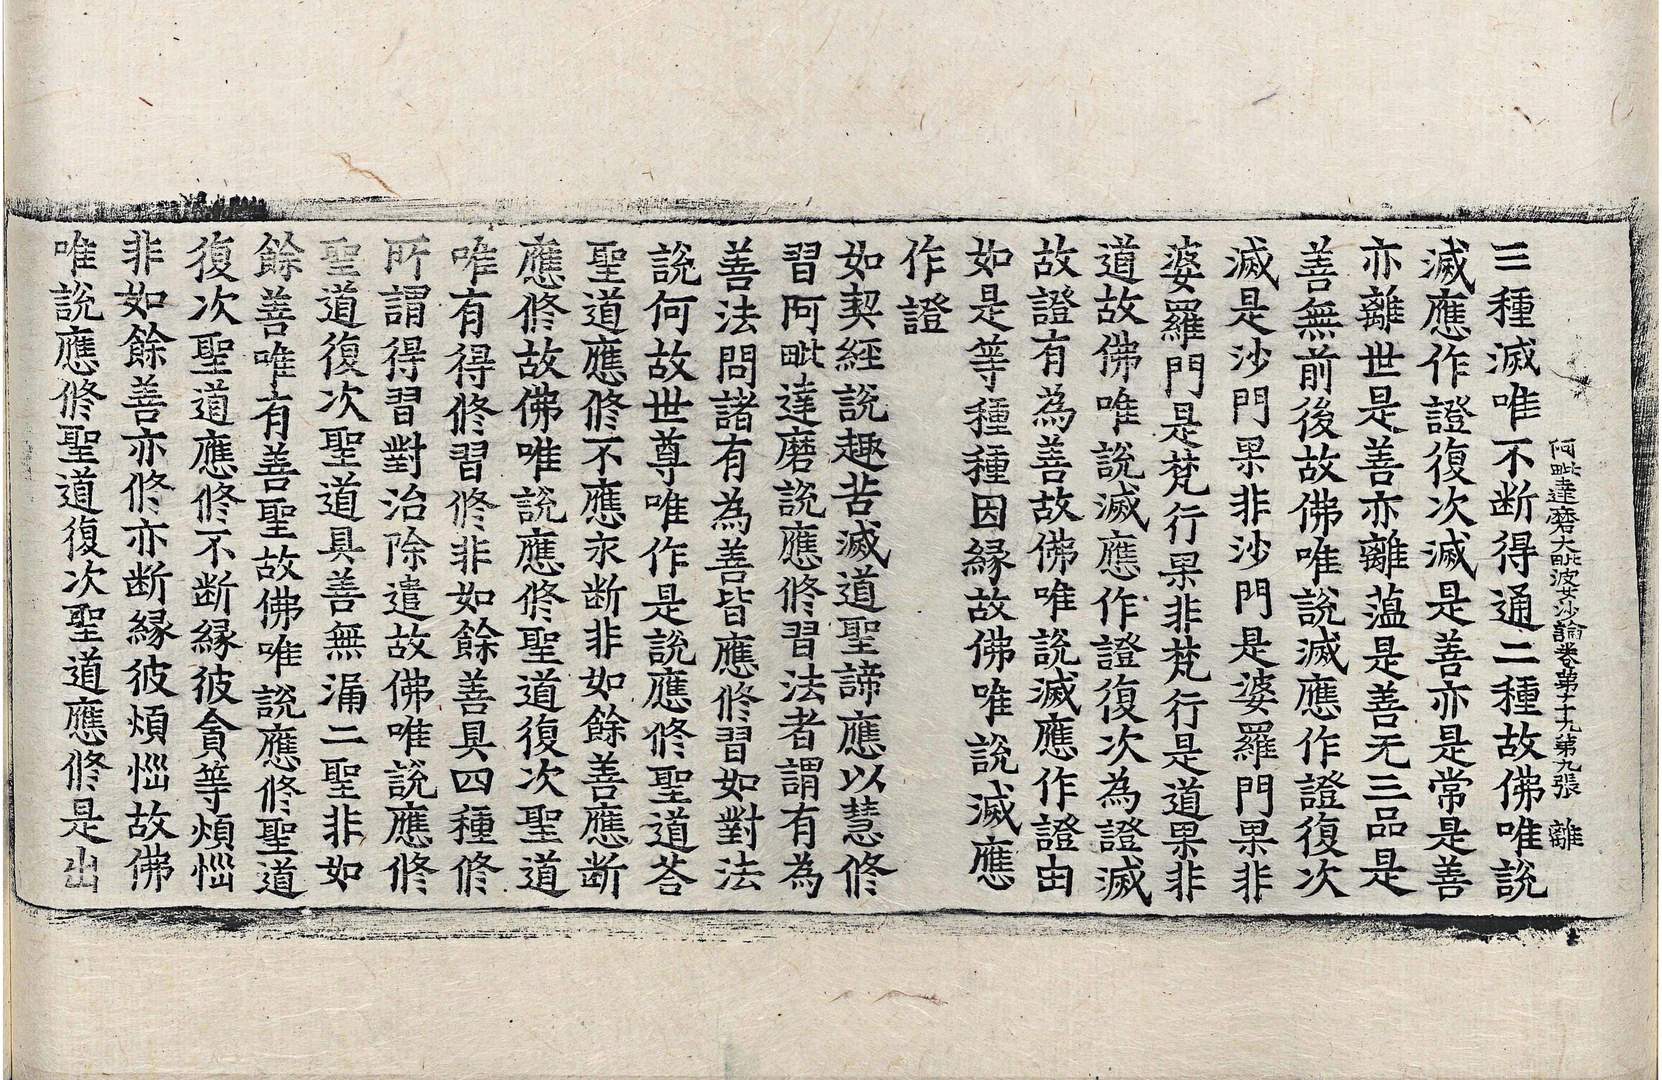 阿毗達磨大毗婆沙論卷第七十九第九張 離
三種滅唯不断得通二種故佛唯說
滅應作證復次滅是善亦是常是善
亦離世是善亦離薀是善无三品是
善無前後故佛唯說滅應作證復次
滅是沙門果非沙門是婆羅門果非
婆羅門是梵行果非梵行是道果非
道故佛唯說滅應作證復次為證滅
故證有為善故佛唯說滅應作證由
如是等種種因緣故佛唯說滅應
作證
如契經說趣苦滅道聖諦應以慧修
習阿毗達磨說應修習法者謂有為
善法問諸有為善皆應修習如對法
說何故世尊唯作是說應修聖道荅
聖道應修不應永断非如餘善應断
應修故佛唯說應修聖道復次聖道
唯有得修習修非如餘善具四種修
所謂得習對治除遣故佛唯說應修
聖道復次聖道具善無漏二聖非如
餘善唯有善聖故佛唯說應修聖道
復次聖道應修不断緣彼貪等煩惱
非如餘善亦修亦断緣彼煩惱故佛
唯說應修聖道復次聖道應修是出